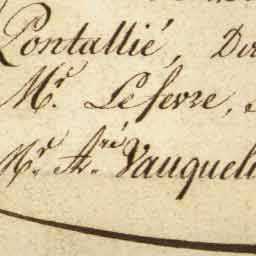 Pontallié, Dir
Mr. Lefevre, 
Mr. Fré. Vauqueli